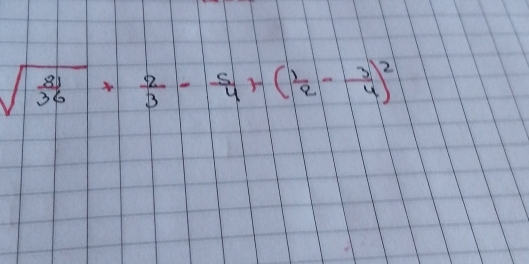 √(81/36) + 2/3 - 5/4 + (1/2 - 3/4)²